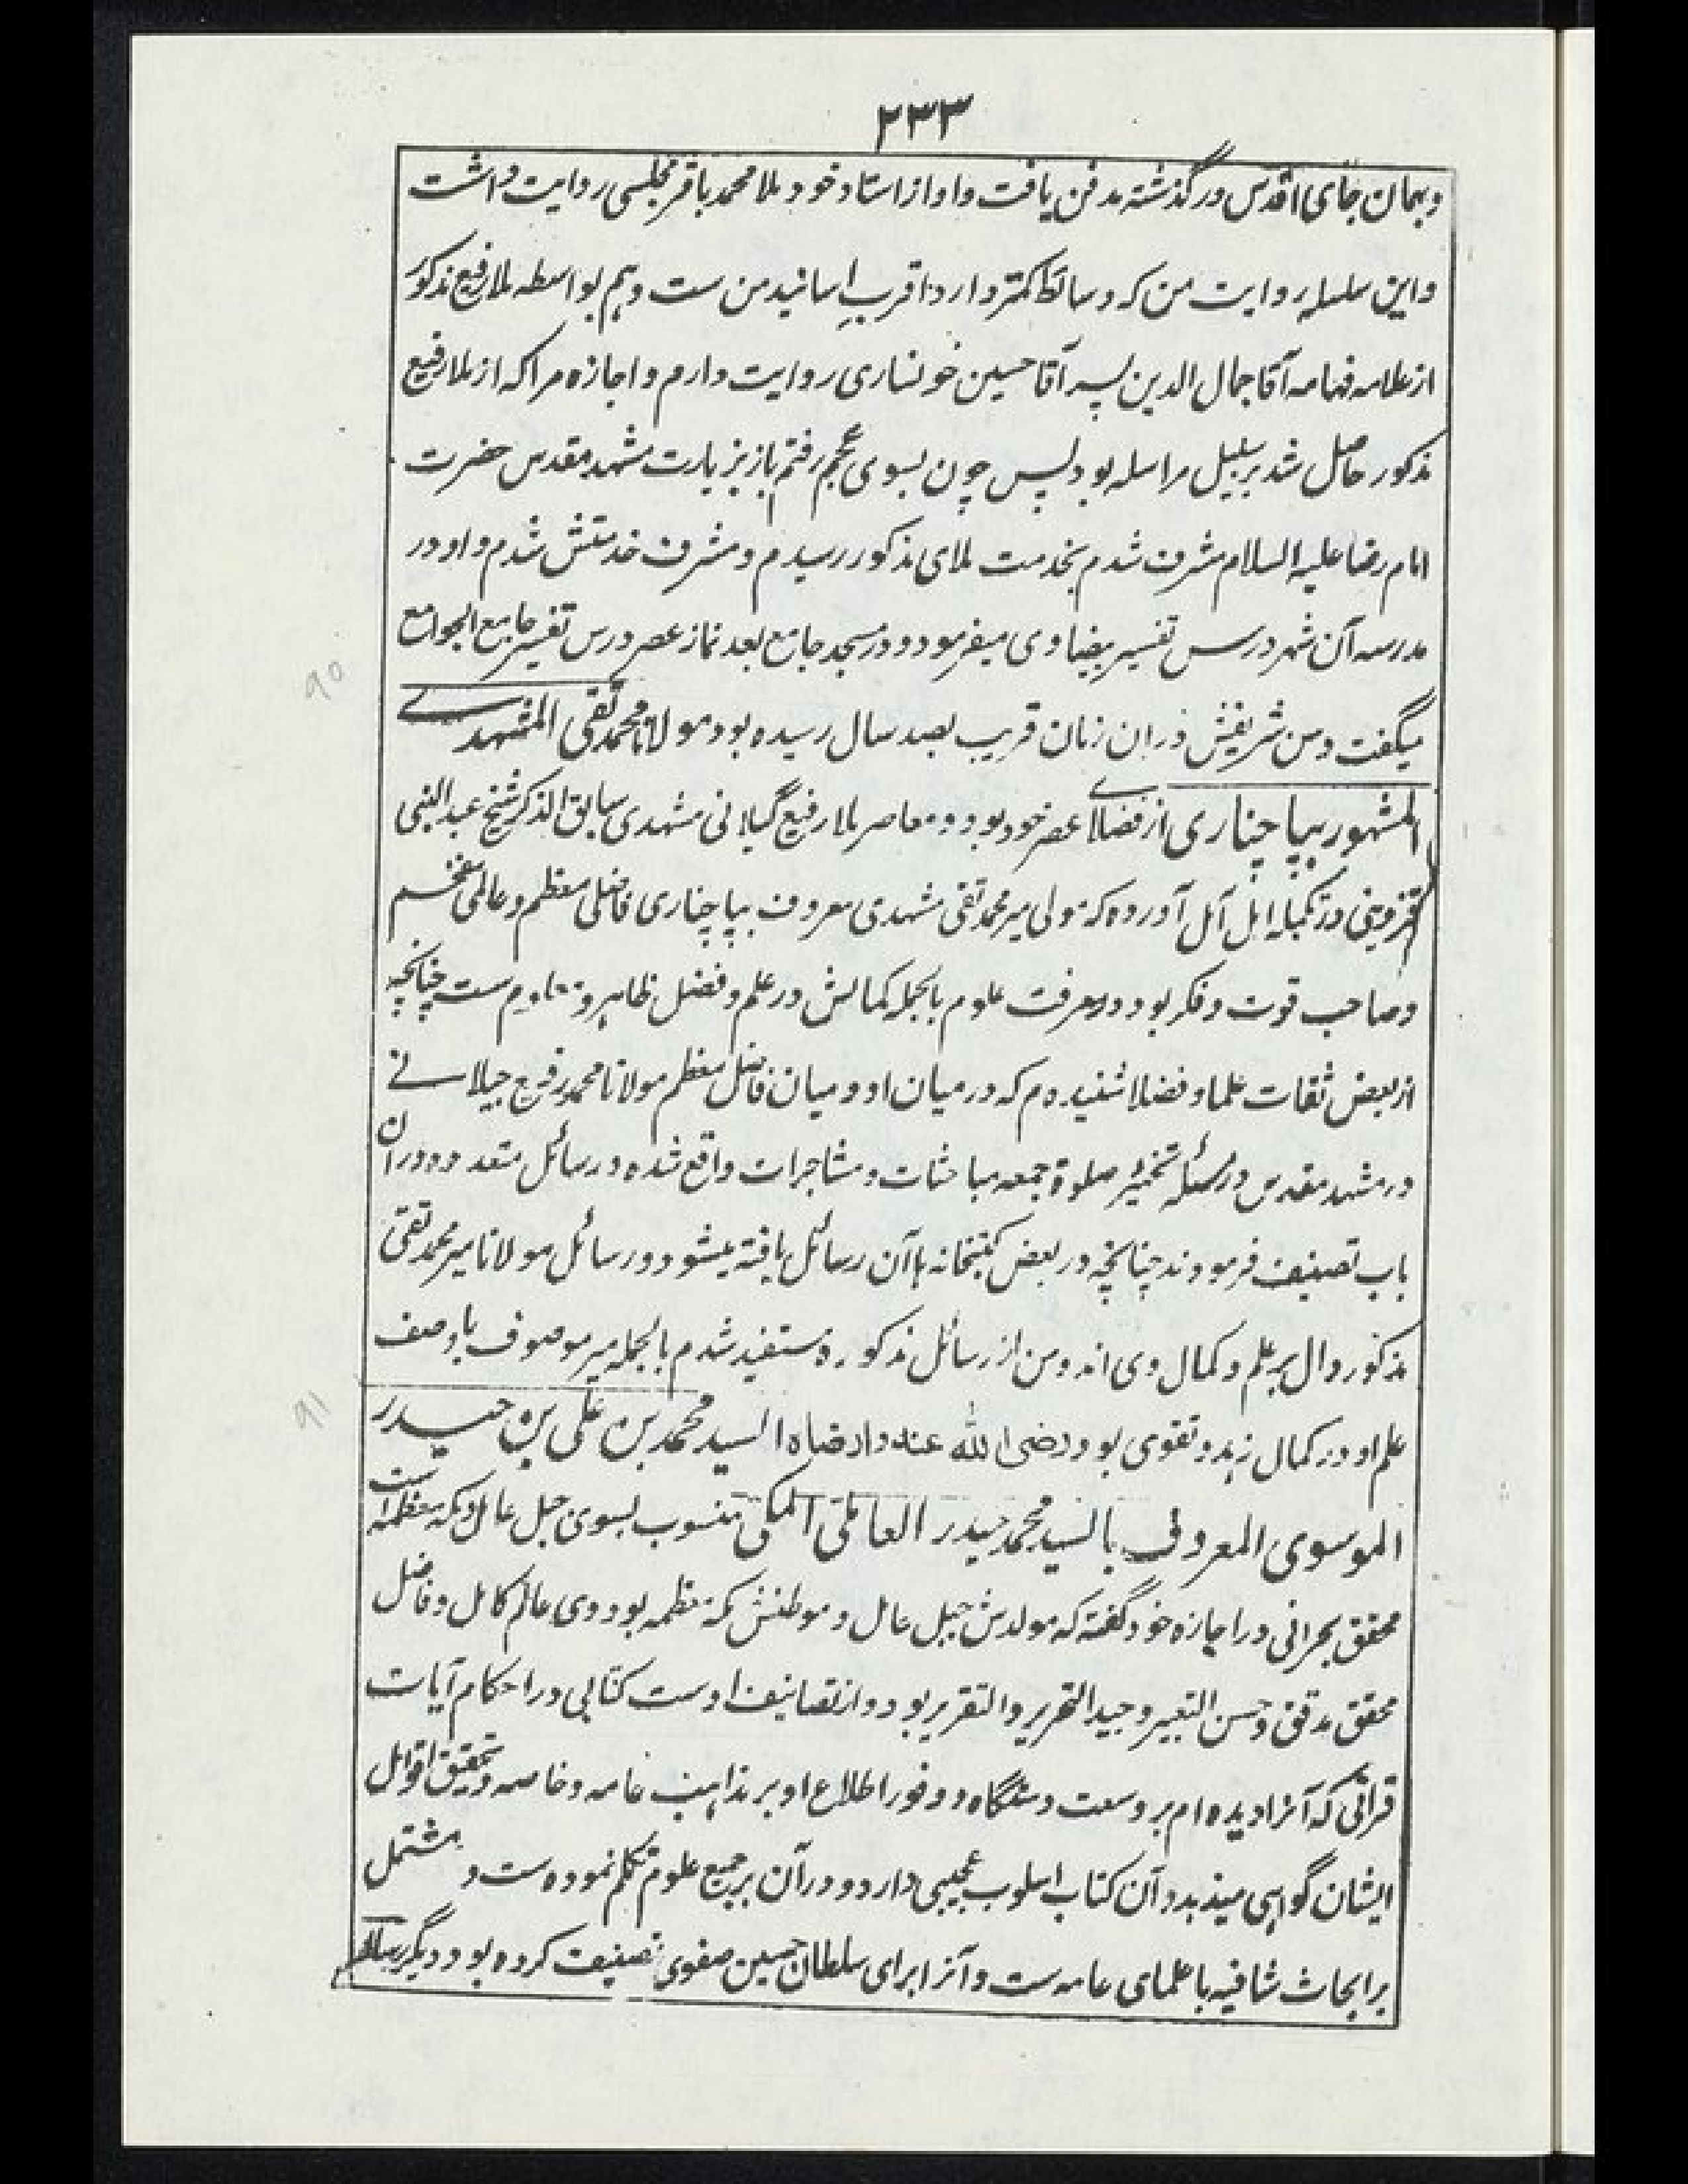 ۲۳۳
وبهمان جای اقدس درگذشته مدفن یافت و او از استاد خود ملا محمد باقر مجلسی روایت داشت
واین سلسله روایت من که وسائط کمتر دارد اقرب اسانید من ست وهم بواسطه ملا رفیع مذکور
از علامه فهامه آقا جمال الدین پسر آقا حسین خونساری روایت دارم و اجازه مرا که از ملا رفیع
مذکور حاصل شد بر سبیل مراسله بود پس چون بسوی عجم رفتم باز بزیارت مشهد مقدس حضرت
امام رضا علیه السلام مشرف شدم بخدمت ملای مذکور رسیدم و مشرف خدمتش شدم و او در
مدرسه آن شهر درس تفسیر بیضاوی میفرمود و در مسجد جامع بعد نماز عصر درس تفسیر جامع الجوامع
۹۰
میگفت و سن شریفش دران زمان قریب بصد سال رسیده بود مولانا محمد تقی المشهدی
المشهور بپا چناری از فضلای عصر خود بود و معاصر ملا رفیع گیلانی مشهدی سابق الذکر شیخ عبد النبی
قزوینی در تکمله امل آمل آورده که مولی میر محمد تقی مشهدی معروف بپا چناری فاضلی معظم و عالمی مفخم
وصاحب قوت و فکر بود در معرفت علوم بالجمله کمالش در علم و فضل ظاهر و ست چنانچه
از بعض ثقات علما و فضلا شنیده ام که در میان او و میان فاضل معظم مولانا محمد رفیع جیلانی
در مشهد مقدس در مسئله تخییر صلوة جمعه مباحثات و مشاجرات واقع شده و رسائل متعدده دران
باب تصنیف فرمودند چنانچه در بعض کتبخانه ها آن رسائل یافته میشود و رسائل مولانا میر محمد تقی
مذکور دال بر علم و کمال وی اند و من از رسائل مذکوره مستفید شدم بالجمله میر موصوف باوصف
۹۱
علم او در کمال زهد و تقوی بود رضی الله عنه وارضاه السید محمد بن علی بن حیدر
الموسوی المعروف بالسید محمد حیدر العاملی المکی منسوب بسوی جبل عامل و مکه معظمه است
محقق بحرانی در اجازه خود گفته که مولدش جبل عامل و موطنش مکه معظمه بود وی عالم کامل و فاضل
محقق مدقق و حسن التعبیر و جید التحریر والتقریر بود و از تصانیف اوست کتابی در احکام آیات
قرآنی که آنرا دیده ام بر وسعت دستگاه و وفور اطلاع او بر مذاهب عامه و خاصه و تحقیق اقوال
ایشان گواهی میدهد و آن کتاب اسلوب عجیبی دارد و در آن بر جمیع علوم تکلم نموده ست و مشتمل
بر ابحاث شافیه با علمای عامه ست و آنرا برای سلطان حسین صفوی تصنیف کرده بود و دیگر رساله